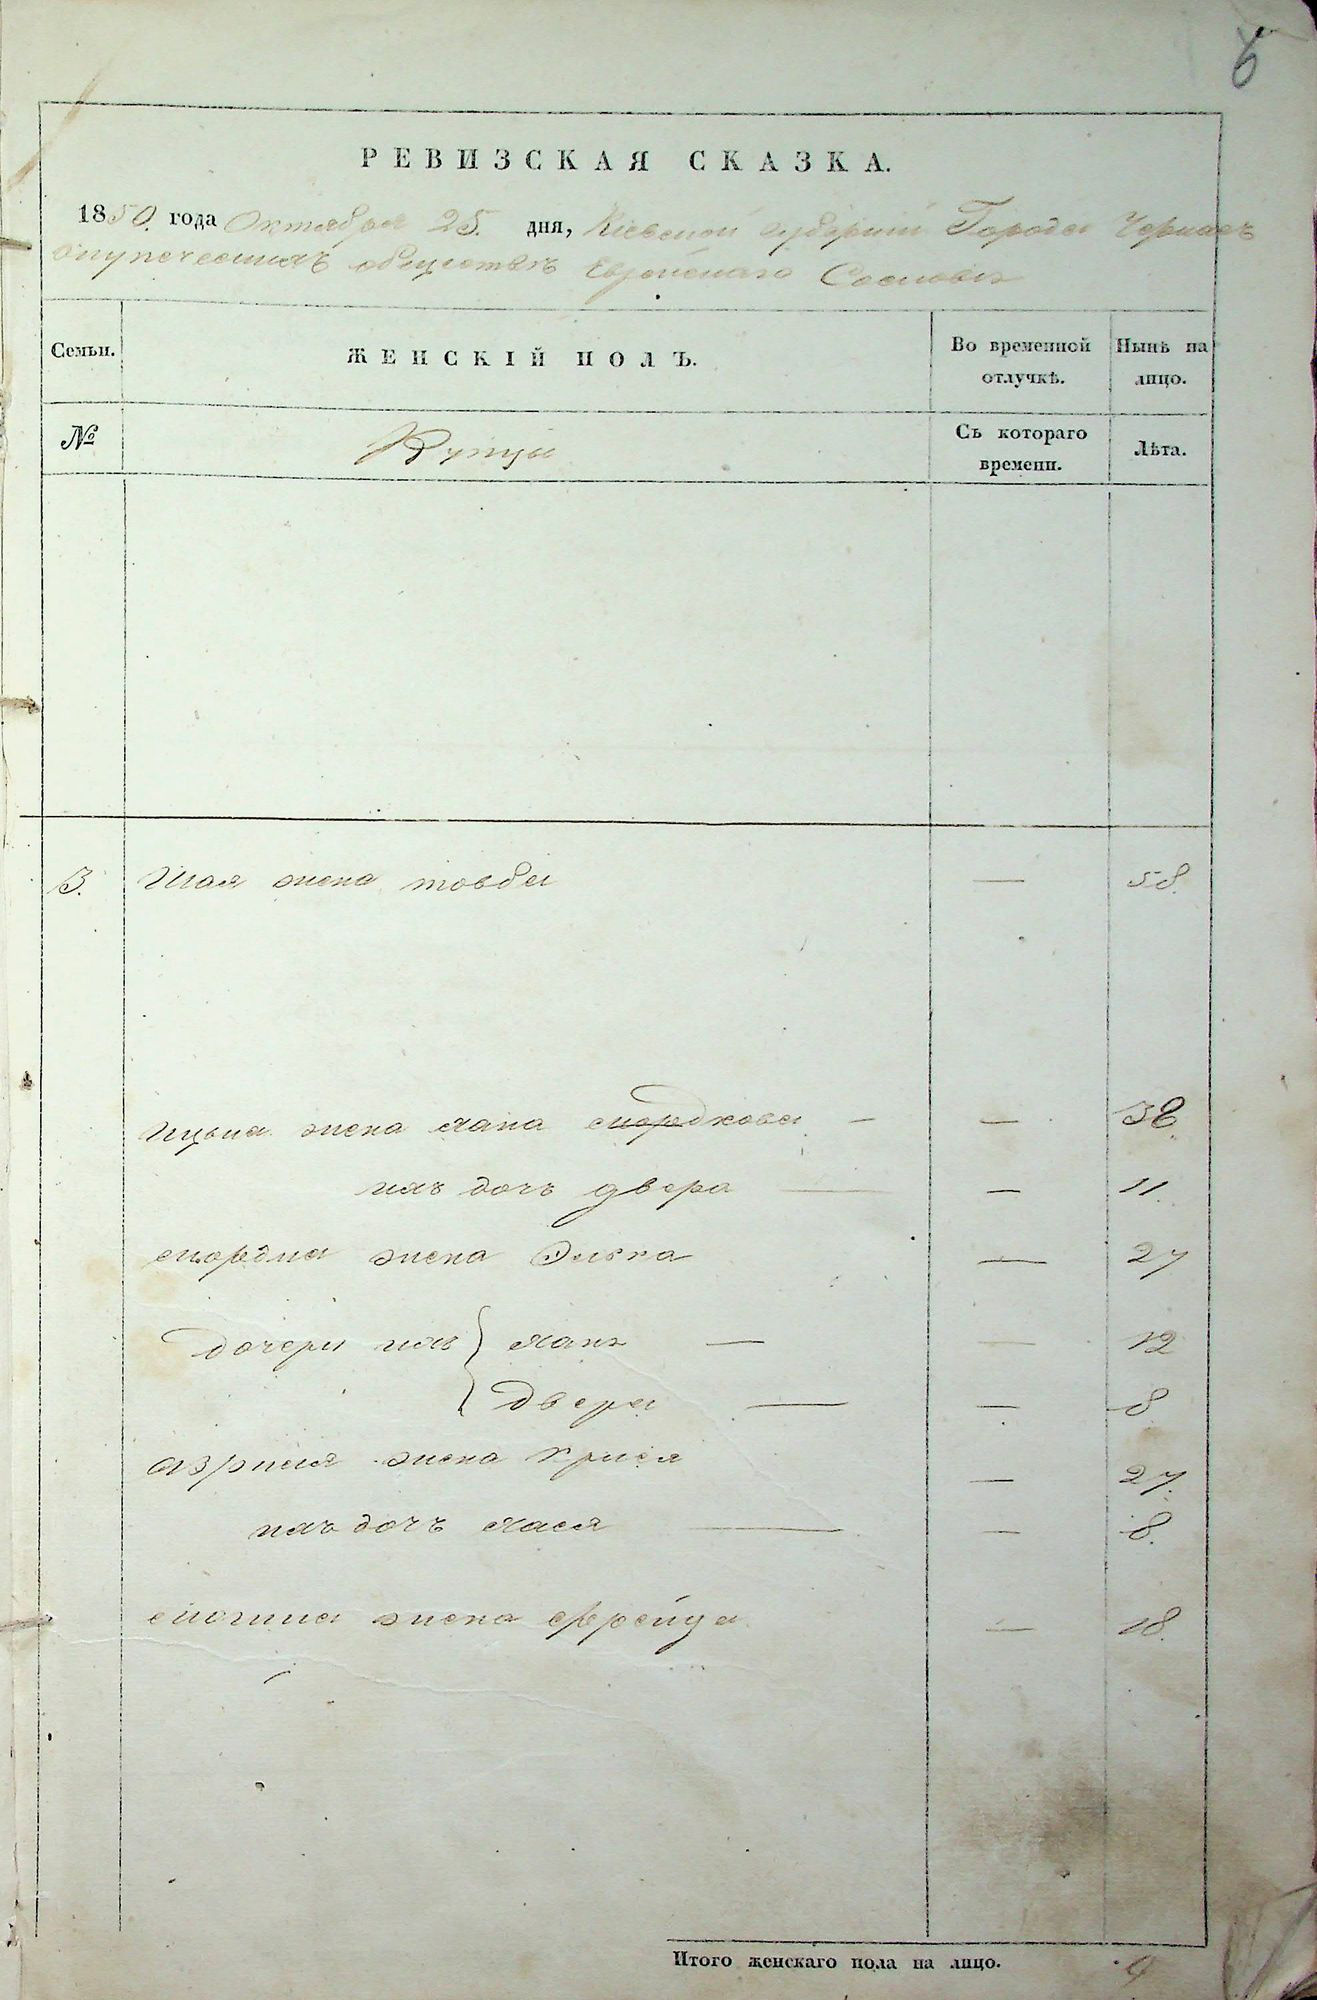 6
РЕВИЗСКАЯ СКАЗКА.
1850. года Октября 25. дня, Кіевской губерніи Города Черкасъ
окупеческихъ обществъ Еврейскаго Сословія
Семьи. ЖЕНСКІЙ ПОЛЪ. Во временной отлучкѣ. Нынѣ на лицо.
№ Купцы Съ котораго времени. Лѣта.
3. Шая жена товба — 58.
Ицька жена хана — — 38.
ихъ дочь двера — — 11.
жена Элька — 27
дочери ихъ хана — — 12
двера — — 8
азриля жена Крися — 27.
ихъ дочь хася — — 8.
жена фрейда — 18.
Итого женскаго пола на лицо. 9